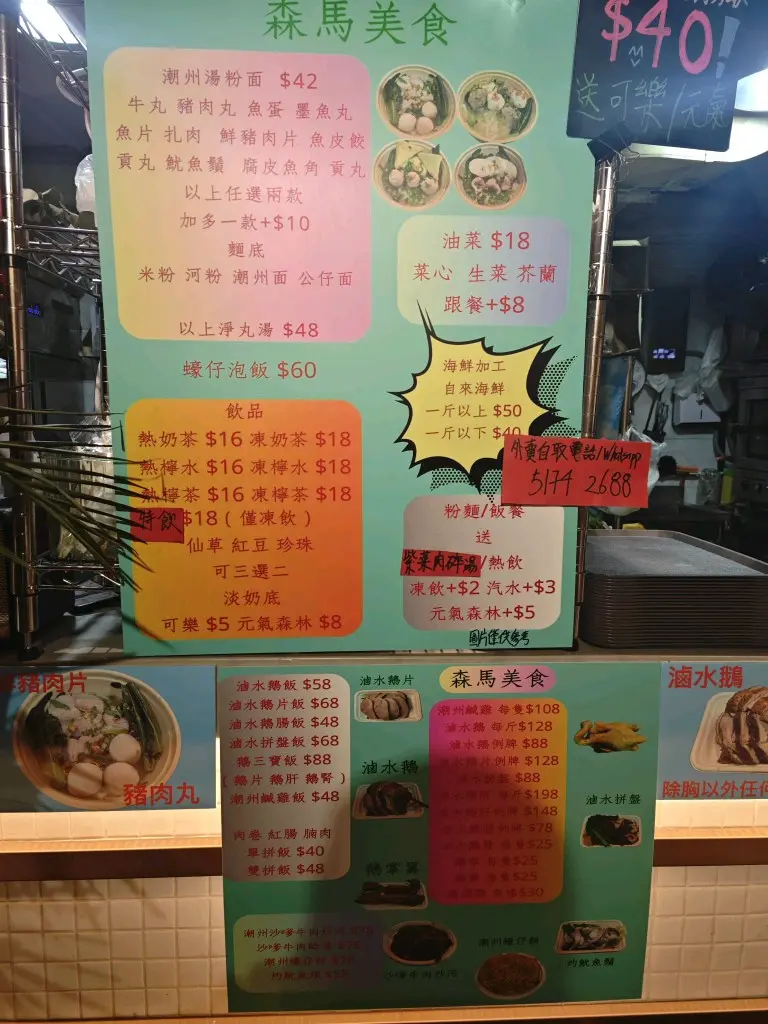 森馬美食
潮州湯粉面 $42
牛丸 豬肉丸 魚蛋 墨魚丸
魚片 扎肉 鮮豬肉片 魚皮餃
貢丸 魷魚鬚 腐皮魚角 貢丸
以上任選兩款
加多一款+$10
麵底
米粉 河粉 潮州面 公仔面
以上淨丸湯 $48
蠔仔泡飯 $60
飲品
熱奶茶 $16 凍奶茶 $18
熱檸水 $16 凍檸水 $18
熱檸茶 $16 凍檸茶 $18
特飲 $18 ( 僅凍飲 )
仙草 紅豆 珍珠
可三選二
淡奶底
可樂 $5 元氣森林 $8
油菜 $18
菜心 生菜 芥蘭
跟餐+$8
海鮮加工
自來海鮮
一斤以上 $50
一斤以下 $40
外賣自取電話/Whatsapp
5174 2688
粉麵/飯餐
送
紫菜肉碎湯/熱飲
凍飲+$2 汽水+$3
元氣森林+$5
圖片僅供參考
$40!
送可樂/元氣
豬肉片
豬肉丸
滷水鵝飯 $58
滷水鵝片飯 $68
滷水鵝腸飯 $48
滷水拼盤飯 $68
鵝三寶飯 $88
( 鵝片 鵝肝 鵝腎 )
潮州鹹雞飯 $48
肉卷 紅腸 腩肉
單拼飯 $40
雙拼飯 $48
滷水鵝片
滷水鵝
鵝掌翼
森馬美食
潮州鹹雞 每隻$108
滷水鵝 每斤$128
滷水鵝例牌 $88
滷水鵝片例牌 $128
$88
$198
$148
$78
$25
每隻$25
$25
$30
滷水拼盤
潮州沙爹牛肉炒河 $78
沙爹牛肉
潮州蠔仔餅
灼魷魚鬚
沙爹牛肉炒河
潮州蠔仔餅
灼魷魚鬚
滷水鵝
除胸以外任何